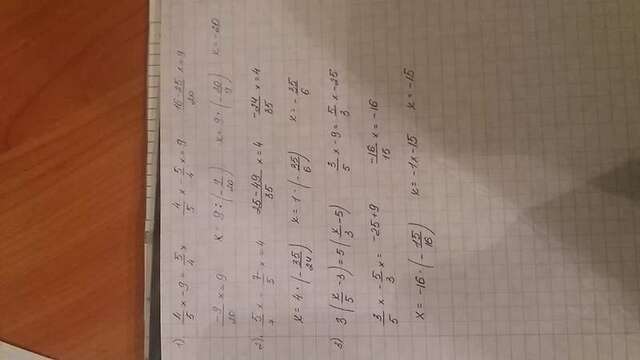 1) 4/5 x - 9 = 5/4 x 4/5 x - 5/4 x = 9 16-25/20 x = 9
-9/20 x = 9 x = 9 : (-9/20) x = 9 · (-20/9) x = -20
2) 5/7 x - 7/5 x = 4 25-49/35 x = 4 -24/35 x = 4
x = 4 · (-35/24) x = 1 · (-35/6) x = -35/6
3) 3(x/5 - 3) = 5(x/3 - 5) 3/5 x - 9 = 5/3 x - 25
3/5 x - 5/3 x = -25+9 -16/15 x = -16
x = -16 · (-15/16) x = -1x-15 x = -15